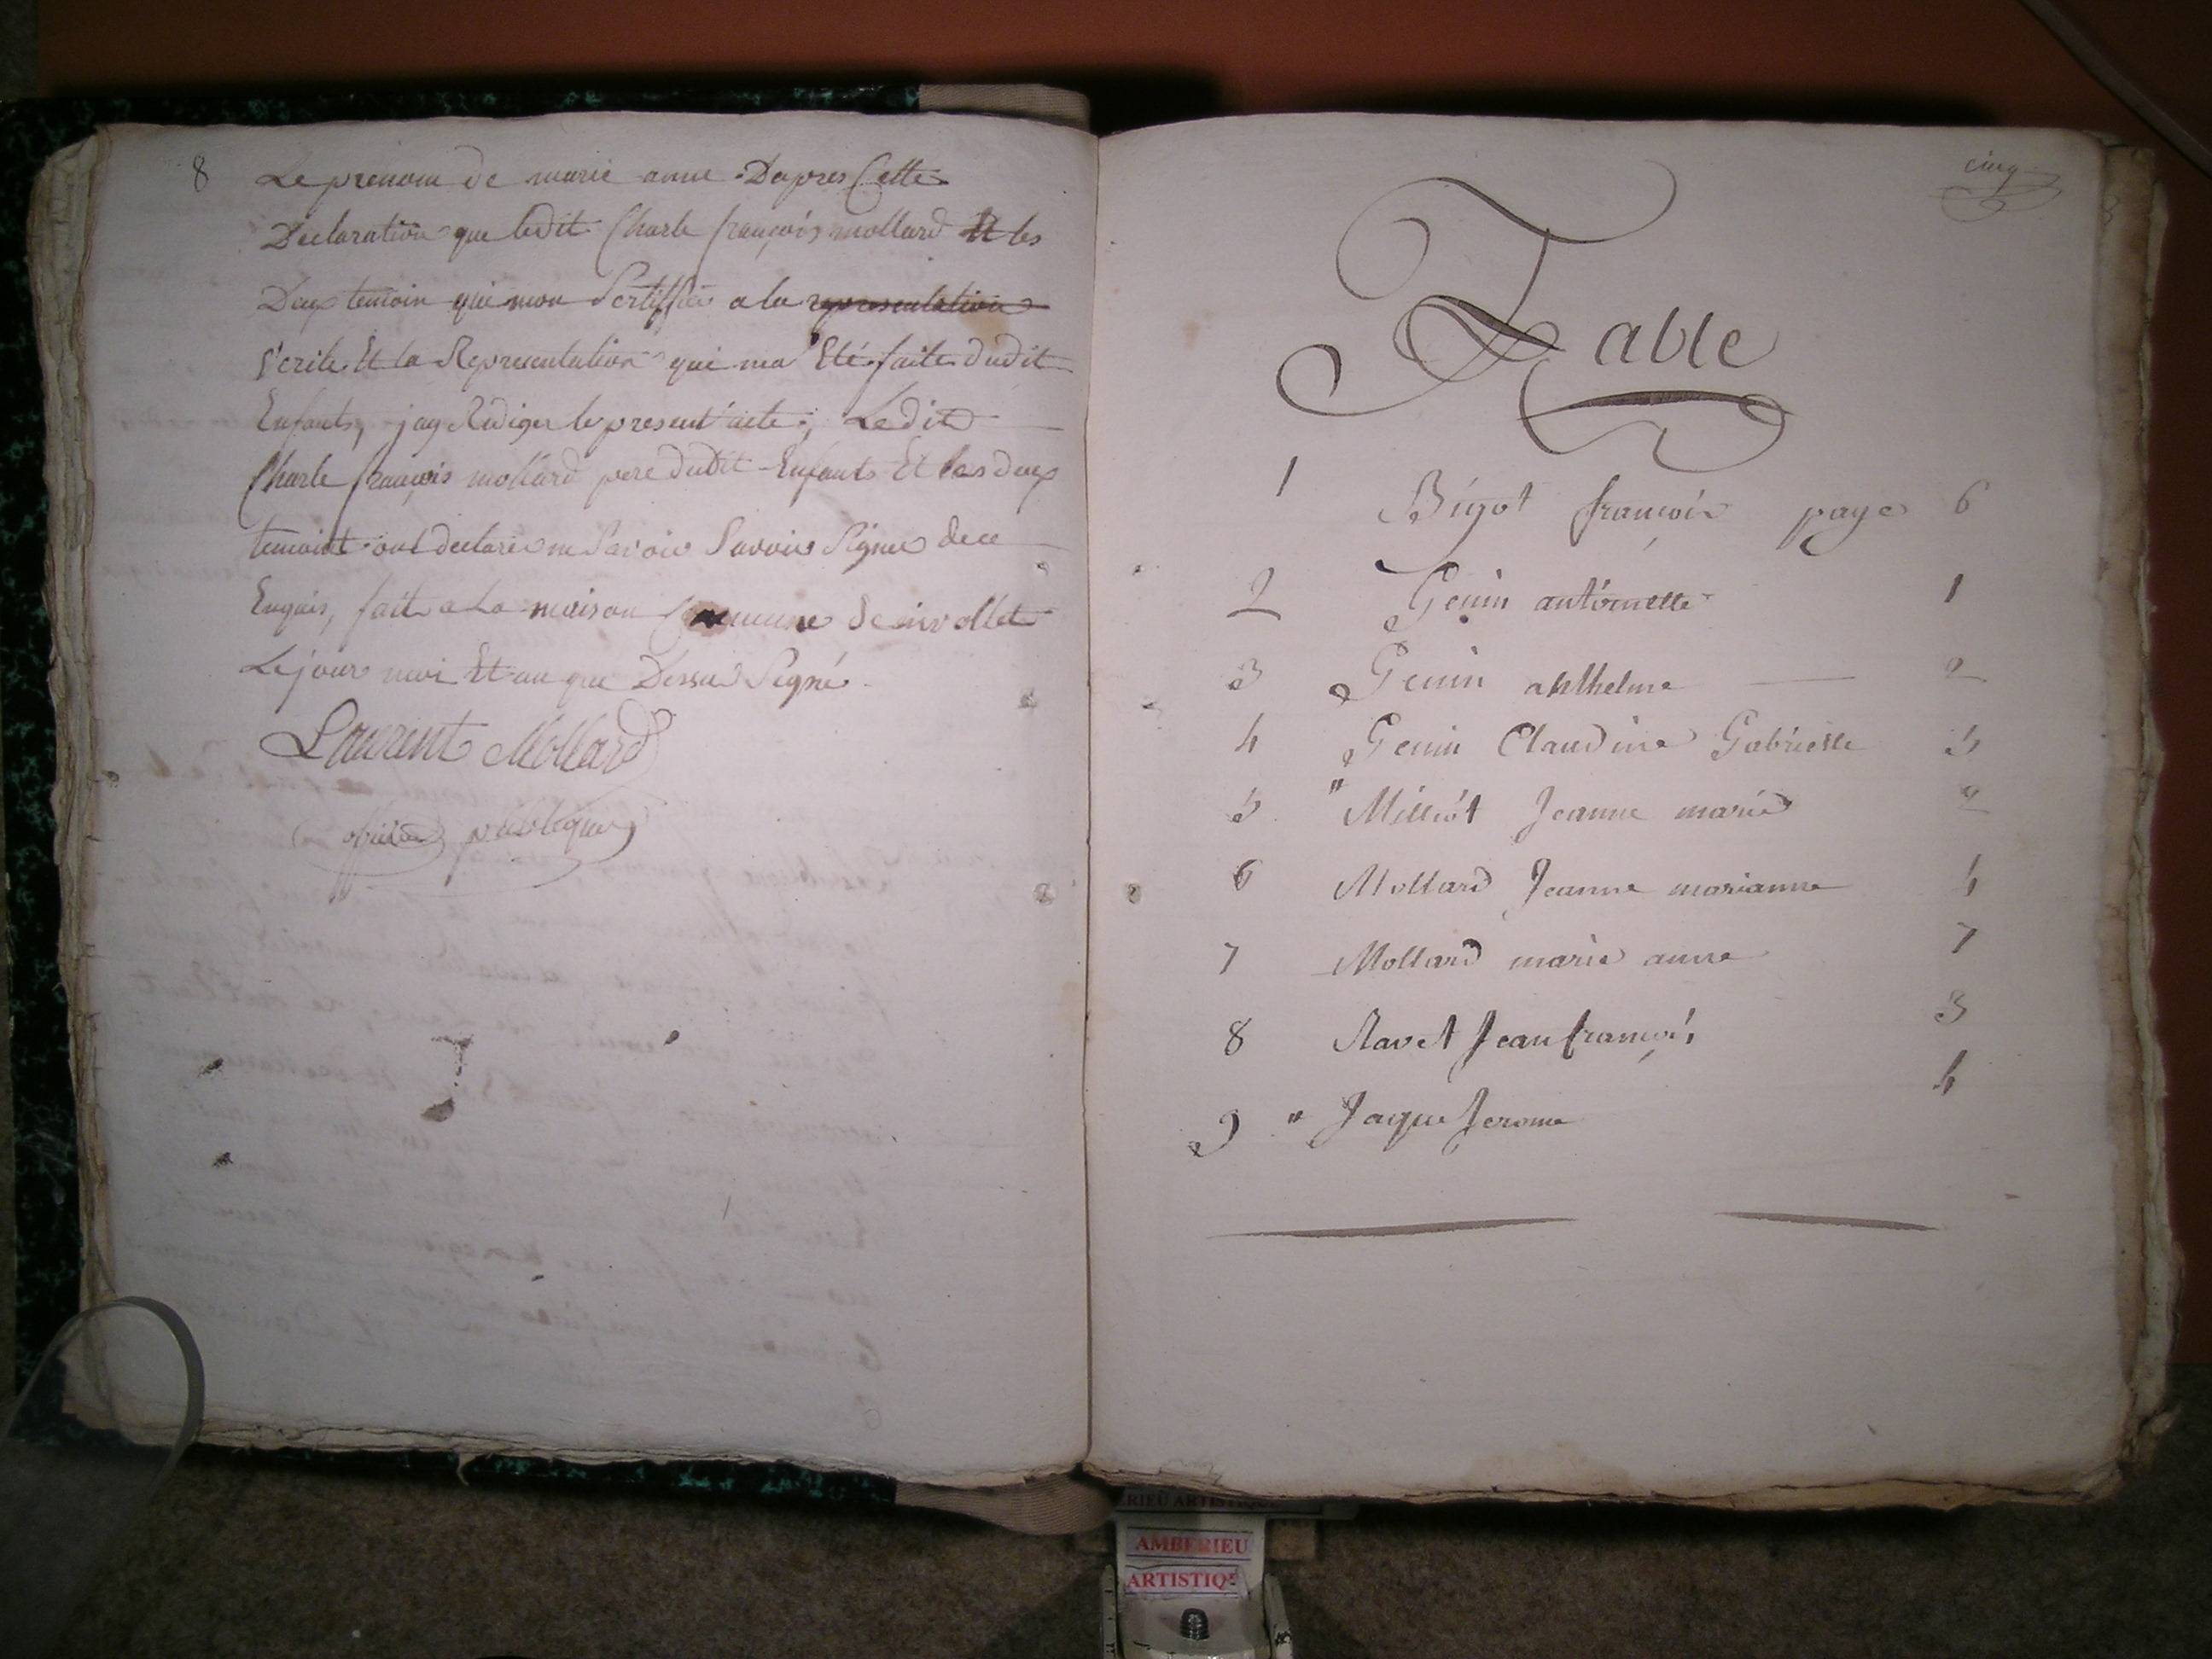 8
Le prenom de marie anne. Dapres Cette
Declaration que ledit Charle françois mollard Et les
Deux temoin qui mon Sertiffiée a la representation
Verité Et la Representation qui ma Eté faite dudit
Enfants, jay Rediger le present acte, Ledit
Charle françois mollard pere dudit Enfants Et les deux
temoint ont declaré ne Savoir Savoir Signer de ce
Enquis, fait a La maison Commune de
Le jour moi Et an que Dessus Signé
Laurent Mollard
officier publique
cinq
Table
1 Bigot françois page 6
2 Genin antoinette 1
3 Genin anthelme 2
4 Genin Claudine Gabrielle 5
5 " Milliot Jeanne marie 2
6 Mollard Jeanne marianne 4
7 Mollard marie anne 7
8 Ravet Jean françois 3
9 " Jaque Jerome 4
ERIEU ARTISTIQUE
AMBERIEU
ARTISTIQUE